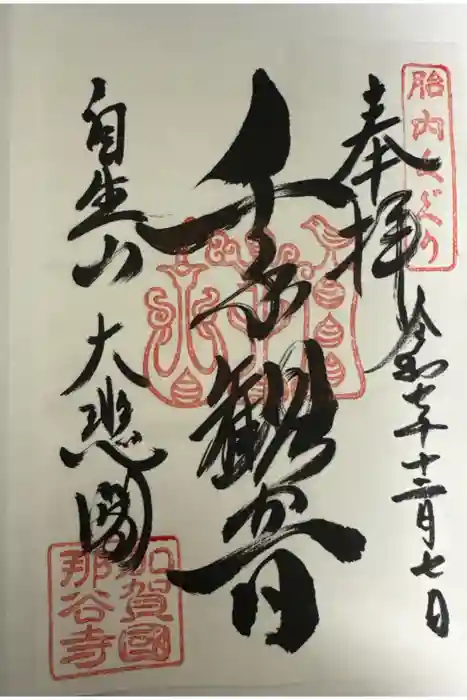 胎内くぐり
奉拝
令和七年十二月七日
千手観音
自生山
大悲閣
加賀國
那谷寺